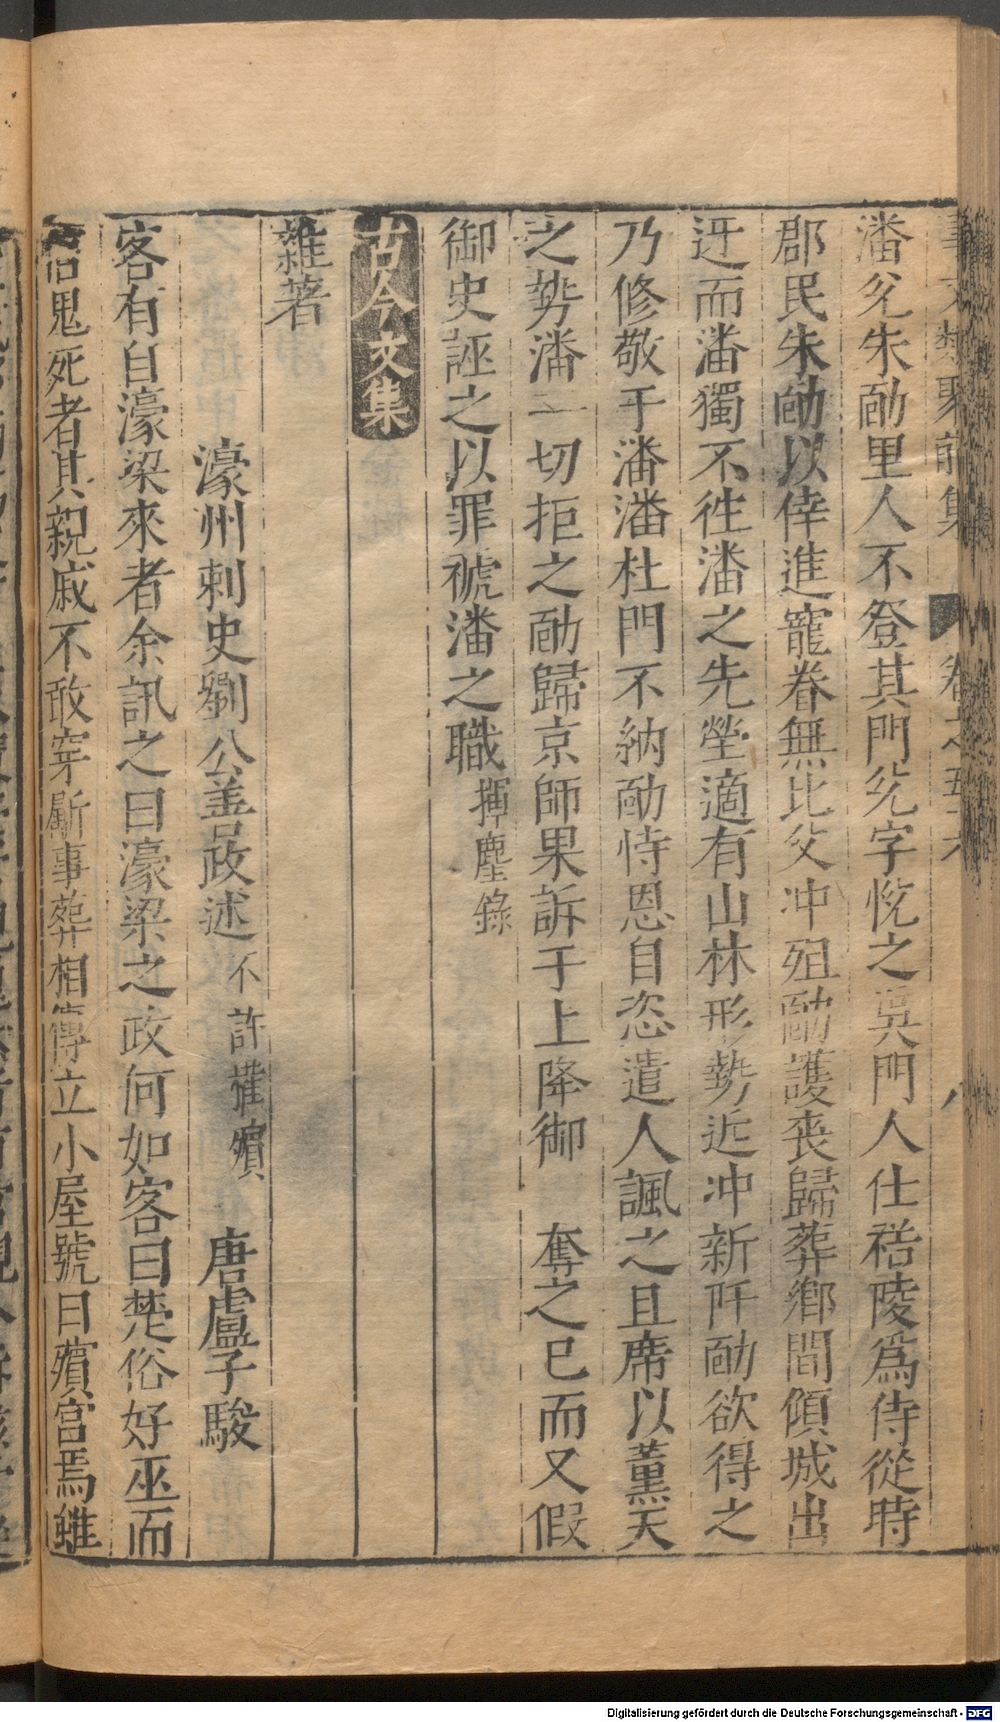 事文類聚前集 卷之五十六 八
潘兊朱勔里人不登其門兊字悅之吳門人仕祐陵爲侍從時
郡民朱勔以倖進寵眷無比父冲殂勔護喪歸葬鄉閭傾城出
迓而潘獨不徃潘之先塋適有山林形勢近冲新阡勔欲得之
乃修敬于潘潘杜門不納勔恃恩自恣遣人諷之且席以薰天
之势潘一切拒之勔歸京師果訴于上降御 奪之已而又假
御史誣之以罪褫潘之職揮塵錄
古今文集
雜著
濠州刺史劉公善政述不許權殯 唐盧子駿
客有自濠梁來者余訊之曰濠梁之政何如客曰楚俗好巫而
信鬼死者其親戚不敢穿斸事葬相傳立小屋號曰殯宮焉雖
Digitalisierung gefördert durch die Deutsche Forschungsgemeinschaft - DFG